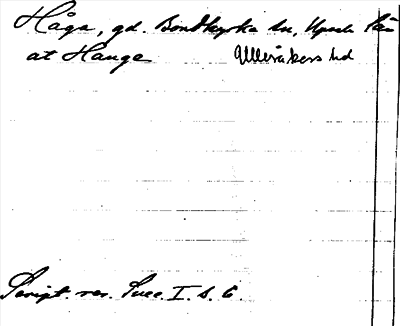 Håga, gd. Bondkyrka sn, Upsala län
at Hauge Ulleråkers hd
Script. rer. Suec. I. s. 6.